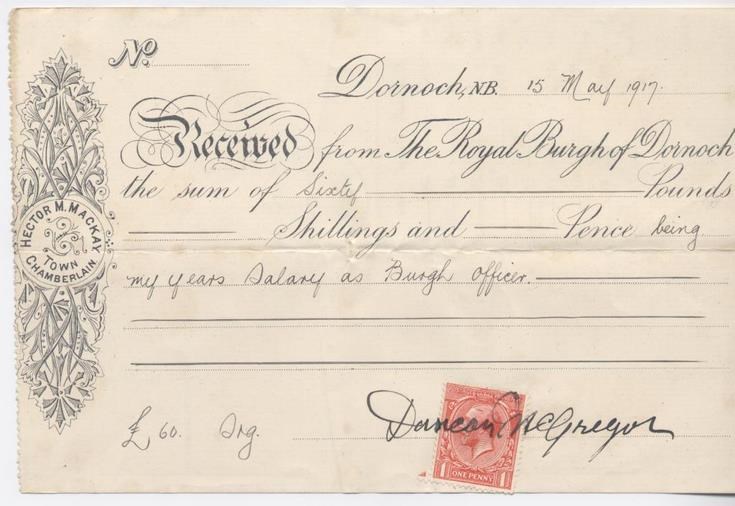 No.
Dornoch, N.B. 15 May 1917.
Received from The Royal Burgh of Dornoch
the sum of Sixty Pounds
Shillings and Pence being
my years Salary as Burgh Officer.
HECTOR M. MACKAY
TOWN
CHAMBERLAIN.
£ 60. Stg.
Duncan McGregor
1 ONE PENNY 1